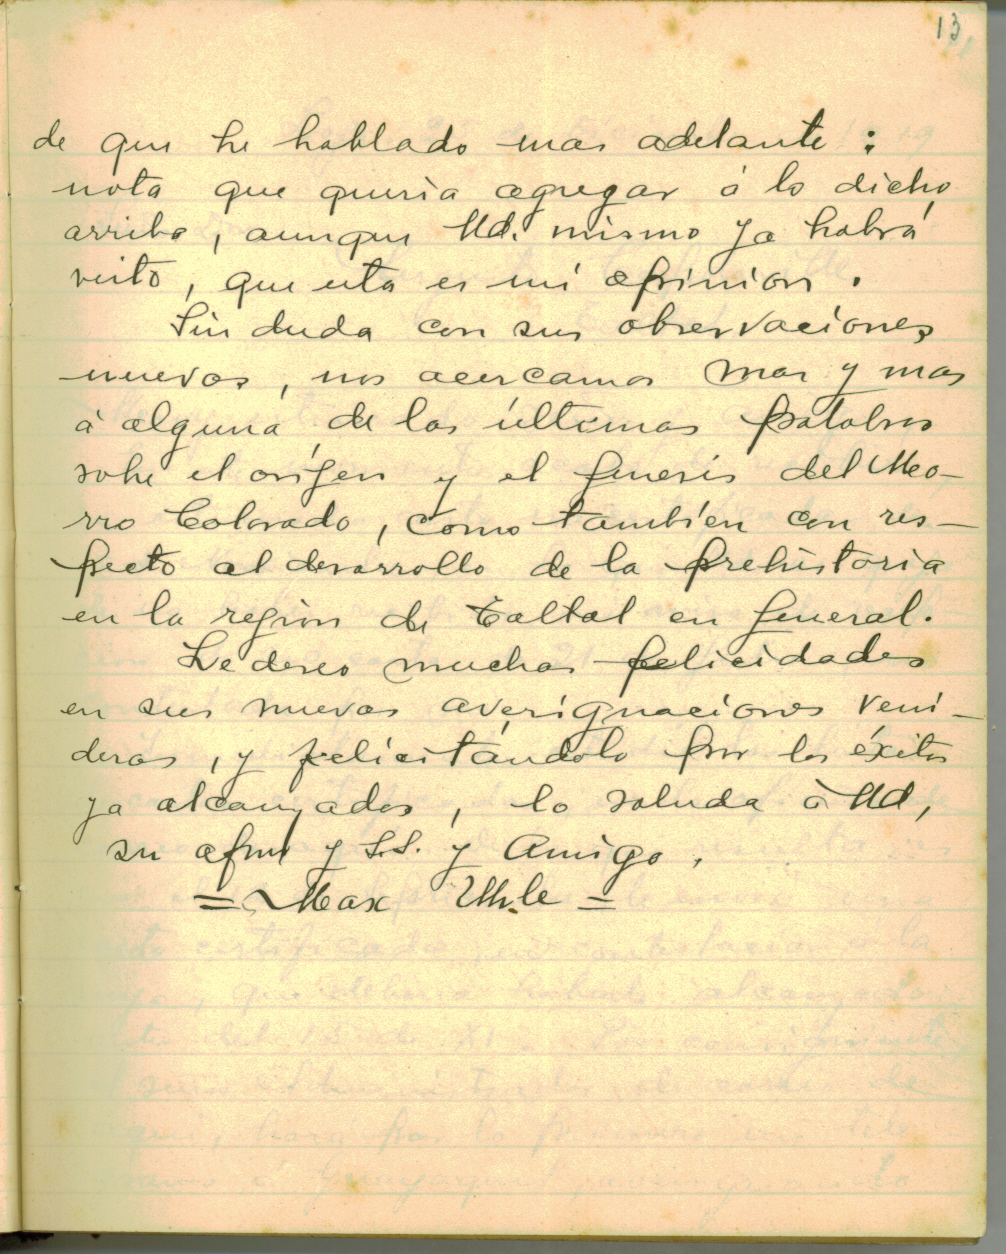 13
de que he hablado mas adelante :
nota que queria agregar á lo dicho
arriba, aunque Ud. mismo ya habrá
visto, que esta es mi opinion.
Sin duda con sus observaciones
nuevas, nos acercamos mas y mas
á alguna de las últimas palabras
sobre el orígen y el genesis del Mo-
rro Colorado, como tambien con res-
pecto al desarrollo de la prehistoria
en la region de Taltal en general.
Le deseo muchas felicidades
en sus nuevas averiguaciones veni-
deras, y felicitándolo por los éxitos
ya alcanzados, lo saluda á Ud,
su afmo y S.S. y Amigo.
= Max Uhle =